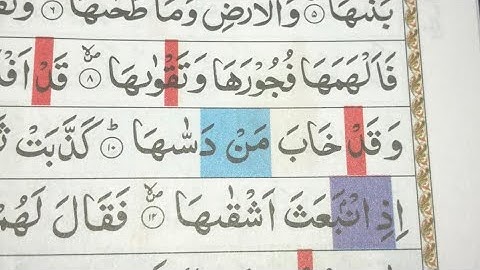 بَنٰىهَا ۝٥ وَالْاَرْضِ وَمَا طَحٰىهَا ۝٦
فَاَلْهَمَهَا فُجُوْرَهَا وَتَقْوٰىهَا ۝٨ قَدْ
وَقَدْ خَابَ مَنْ دَسّٰىهَا ۝١٠ كَذَّبَتْ
اِذِ انْۢبَعَثَ اَشْقٰىهَا ۝١٢ فَقَالَ لَهُمْ